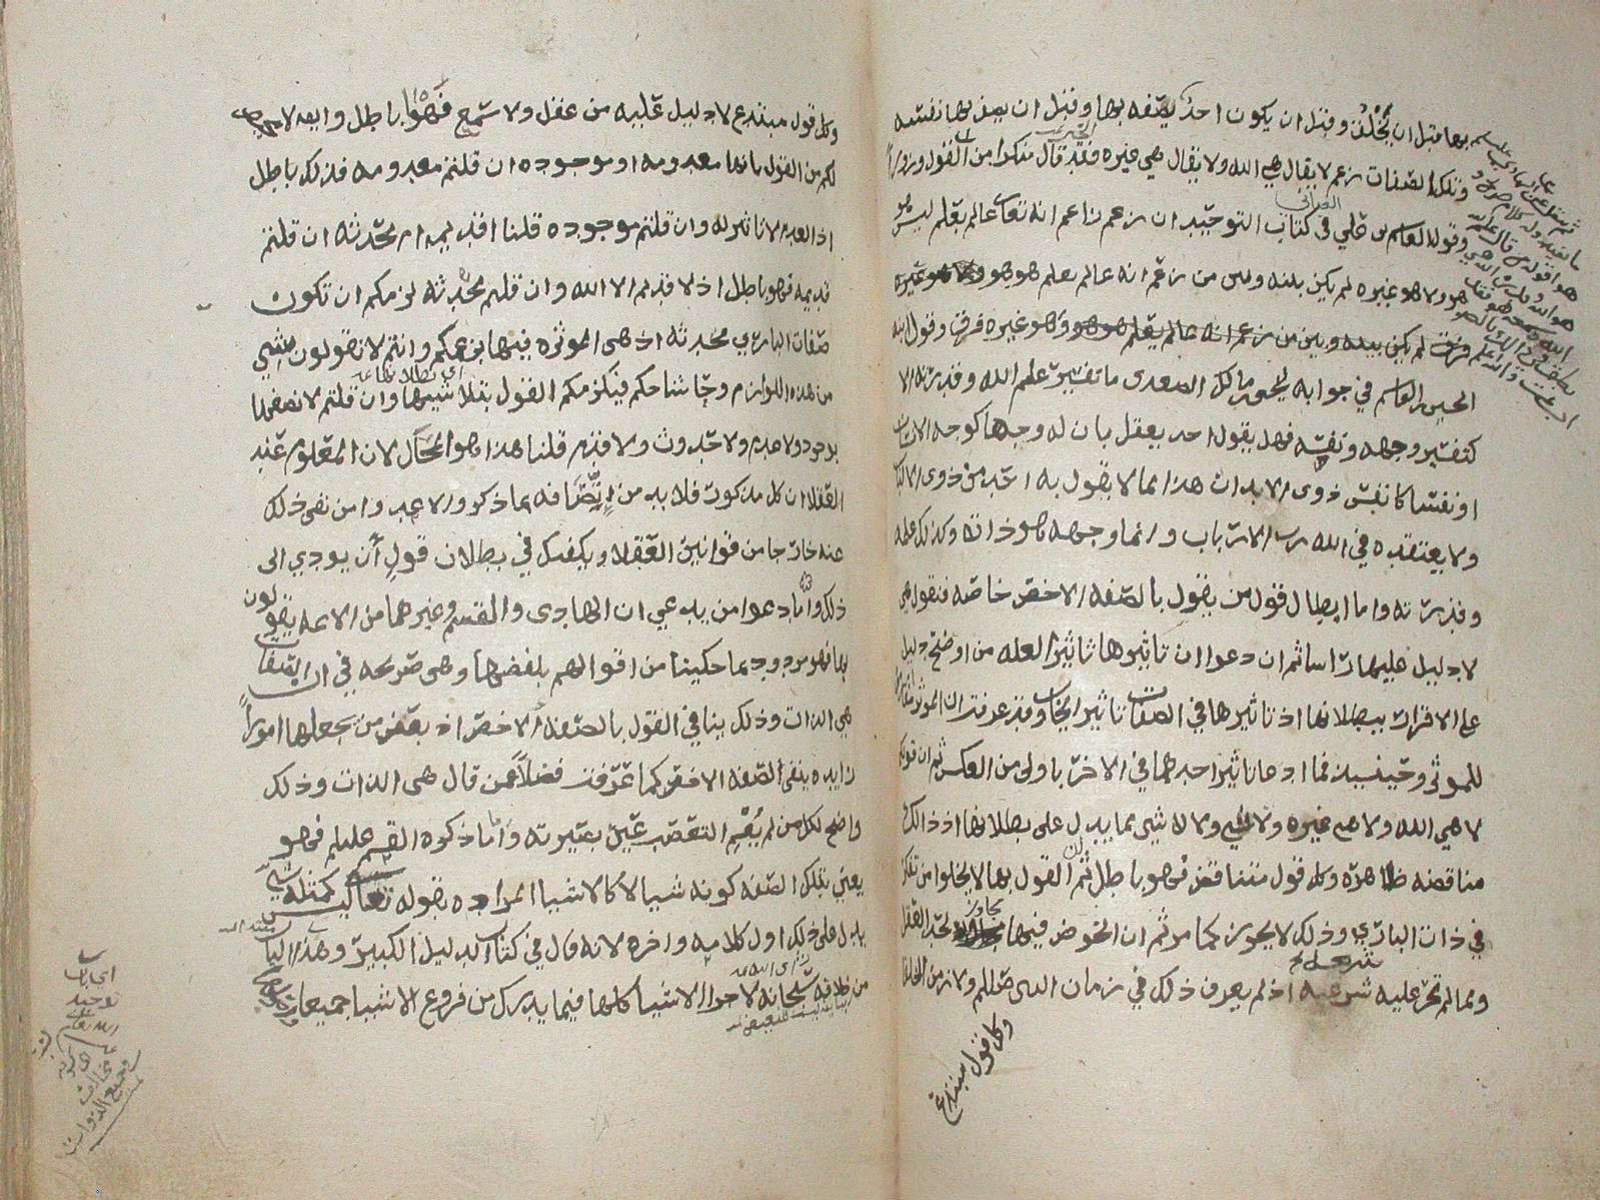 بها قبل ان يُخْلق وقبل ان يكون احد يصفه بها وقبل ان يصف بها نفسه
وتلك الصفات زعم لا يقال هي الله ولا يقال هي غيره فقد قال منكرا من القول وزورا
وقول القاسم بن علي في كتاب التوحيد ان زعم زاعم انه تعالى عالم بعلم ليس هو
هو ولا هو غيره لم يكن بينه وبين من زعم انه عالم بعلم هو هو وهو غيره
فرق لم يكن بينه وبين من زعم انه عالم بعلم هو هو وهو غيره فرق وقول
الحسين بن القاسم في جوابه مالك الصعدي ما تفسير علم الله وقدرته الا
كتفسير وجهه ونفسه فهل يقول احد يعقل بان له وجها كوجه الانسان
او نفسا كانفس ذوي الابدان هذا ما لا يقول به احد من ذوي الالباب
ولا يعتقده في الله رب الارباب وانما وجهه هو ذاته وكذلك علمه
وقدرته واما ابطال قول من يقول بالصفه الاخص خاصه فنقول هي
لا دليل عليها راسا ثم ان دعواان تاثيرها تاثير العله من اوضح دليل
على الاقرار ببطلانها اذ تاثيرها في الصفات تاثير ايجاب وقد عرفت ان الموثر
للموثر وحينيذ فما ادعا تاثير احدهما في الاخر باولى من العكس ثم ان قولكم
لا هي الله ولا هي غيره ولا شي ولا لا شي مما يدل على بطلانها اذ ذالك
مناقضه ظاهره وكل قول متناقض فهو باطل ثم القول بها لا يخلوا من تفكر
في ذات الباري وذلك لا يجوز كما مر ثم ان الخوض فيها تجاوز لحد العقل
ومما لم تجر عليه شريعه اذ لم يعرف ذلك في زمان النبي صللم ولا زمن الخلفا
وكل قول مبتدع
وكل قول مبتدع لا دليل عليه من عقل ولا سمع فهوا باطل وايضا لا
لكم من القول بانها معدومه او موجوده ان قلتم معدومه فذلك باطل
اذ العدم لا تاثير له وان قلتم موجوده قلنا اقديمه ام محدثه ان قلتم
قديمه فهو باطل اذ لا قديم الا الله وان قلتم محدثه لزمكم ان تكون
صفات الباري محدثه اذ هي الموثره فيها بزعمكم وانتم لا تقولون بشي
من هذه اللوازم وحاشاكم فيلزمكم القول بتلاشيها وان قلتم لا نصفها
بوجود ولا عدم ولا حدوث ولا قدم قلنا هذا هو المحال لان المعلوم عند
العقلا ان كل مذكور فلا بد من اتصافه بما ذكر والا عد من نفى ذلك
عنه خارجا من قوانين العقلا ويكفيك في بطلان قول أن يودي الى
ذلك وأما دعوا من يدعي ان الهادي والقسم وغيرهما من الايمه يقولون
بها فهو مردود بما حكينا من اقوالهم بلفضها وهي صريحه في ان الصفات
هي الذات وذلك ينافي القول بالصفه الاخص اذ بعض من يجعلها اموراً
زايده ينفي الصفه الاخص كما عرفت فضلاً عمن قال هي الذات وذلك
واضح لكل من لم يُعْمِ التعصب عين بصيرته وأما ما ذكره القسم عليلم فهو
يعني بتلك الصفه كونه شيا لا كالاشيا المراده بقوله تعالى ليس كمثله شي
يدل على ذلك اول كلامه واخره لانه قال في كتاب الدليل الكبير وهذا الباب
من خلافه سبحانه لاجزا الاشيا كلها فيما يدرك من فروع الاشيا جميعا
اي باب
توحيد
الله تعالى